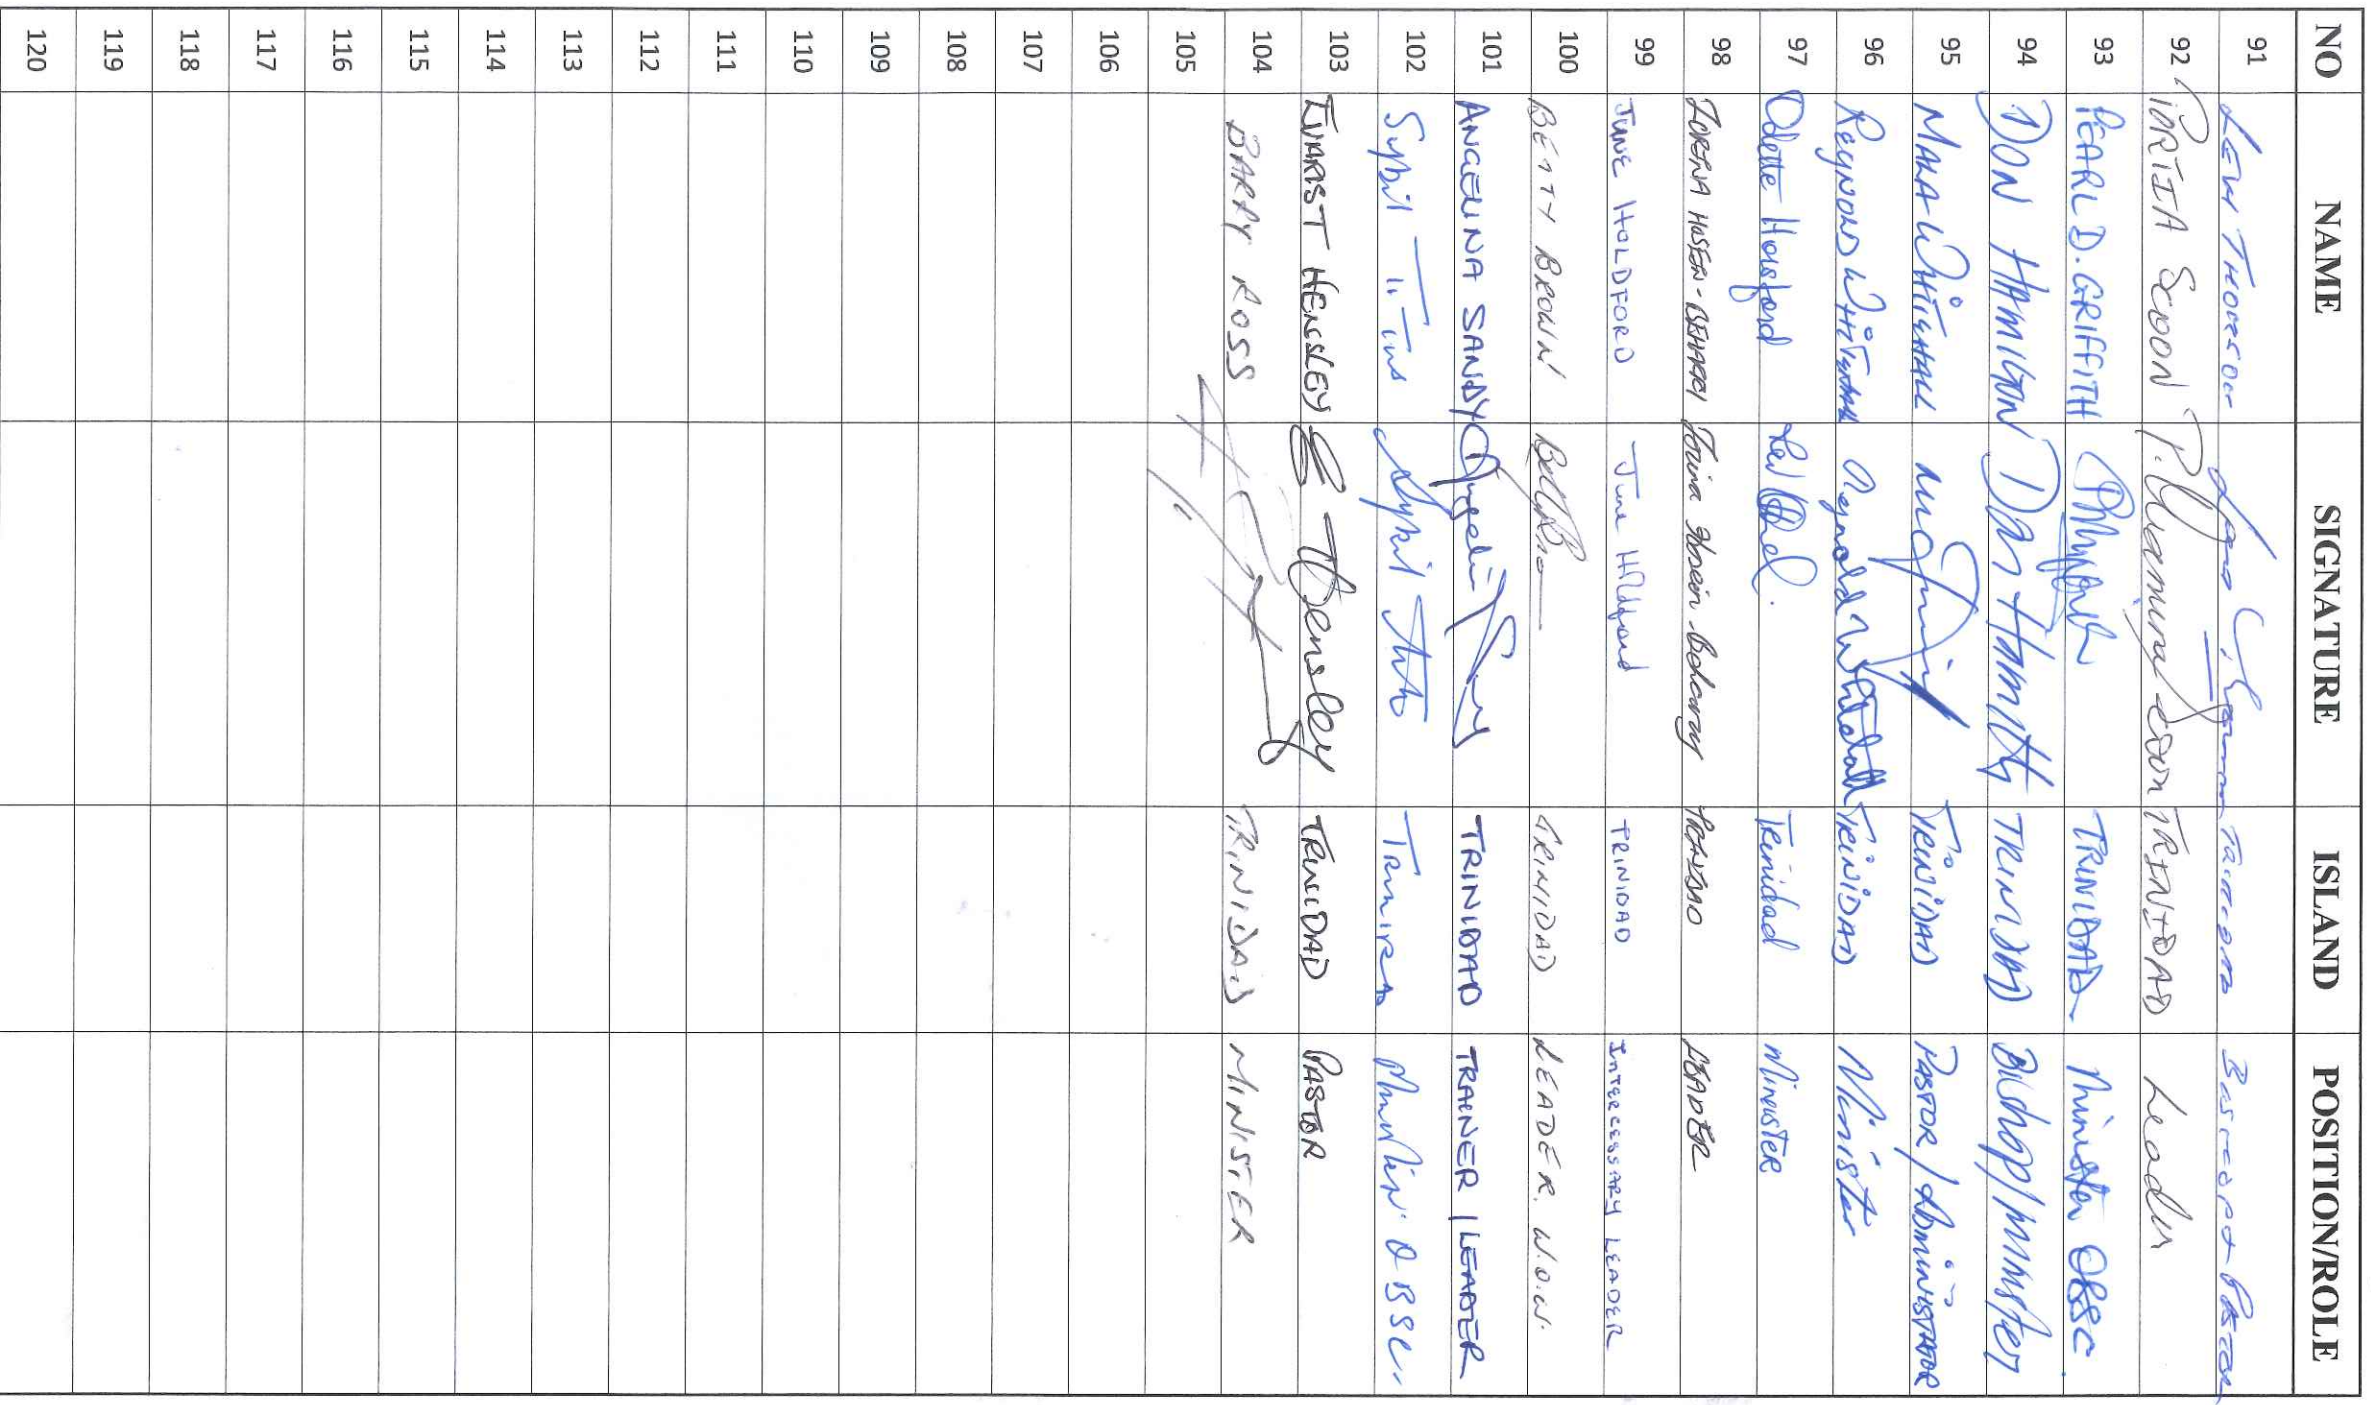 NO NAME SIGNATURE ISLAND POSITION/ROLE
91
92 PORTIA SCOON TRINIDAD Leader
93 PEARL D. GRIFFITH TRINIDAD Minister OBSC
94 DON HAMILTON Don Hamilton TRINIDAD Bishop/Minister
95 WHITEHALL TRINIDAD PASTOR / ADMINISTRATOR
96 REYNOLD WHITEHALL Reynold Whitehall TRINIDAD Minister
97 Odette Horsford Trinidad MINISTER
98 ZORINA HOSEIN-BEHARRY Zorina Hosein-Beharry TRINIDAD LEADER
99 JUNE HOLDFORD June Holdford TRINIDAD INTERCESSARY LEADER
100 BETTY BROWN TRINIDAD LEADER W.O.W.
101 ANGELINA SANDY TRINIDAD TRAINER / LEADER
102 Sybil Sybil OBSC
103 EVARIST HENSLEY E Hensley TRINIDAD PASTOR
104 BARRY ROSS TRINIDAD MINISTER
105
106
107
108
109
110
111
112
113
114
115
116
117
118
119
120